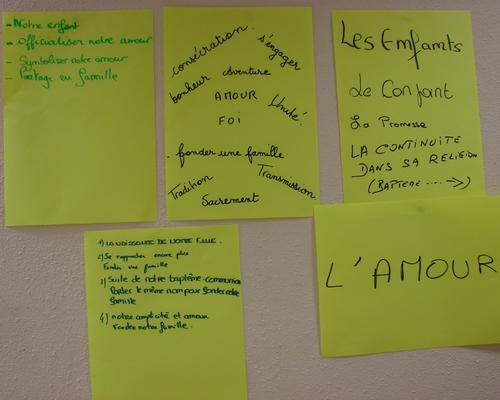 - Notre enfant
- Officialiser notre amour
- Symboliser notre amour
- Partage en famille
consécration
s'engager
bonheur
aventure
AMOUR
Unité.
FOI
- fonder une famille
Tradition
Transmission
Sacrement
Les Enfants
Le Conjoint
La Promesse
LA CONTINUITE
DANS SA RELIGION
(BAPTEME .... →)
L'AMOUR
1) LA NAISSANCE DE NOTRE FILLE.
2) Se rapprocher encore plus
Fonder une famille
3) Suite de notre baptême-communion
Porter le même nom pour fonder notre
famille
4) notre complicité et amour
Fonder notre famille.